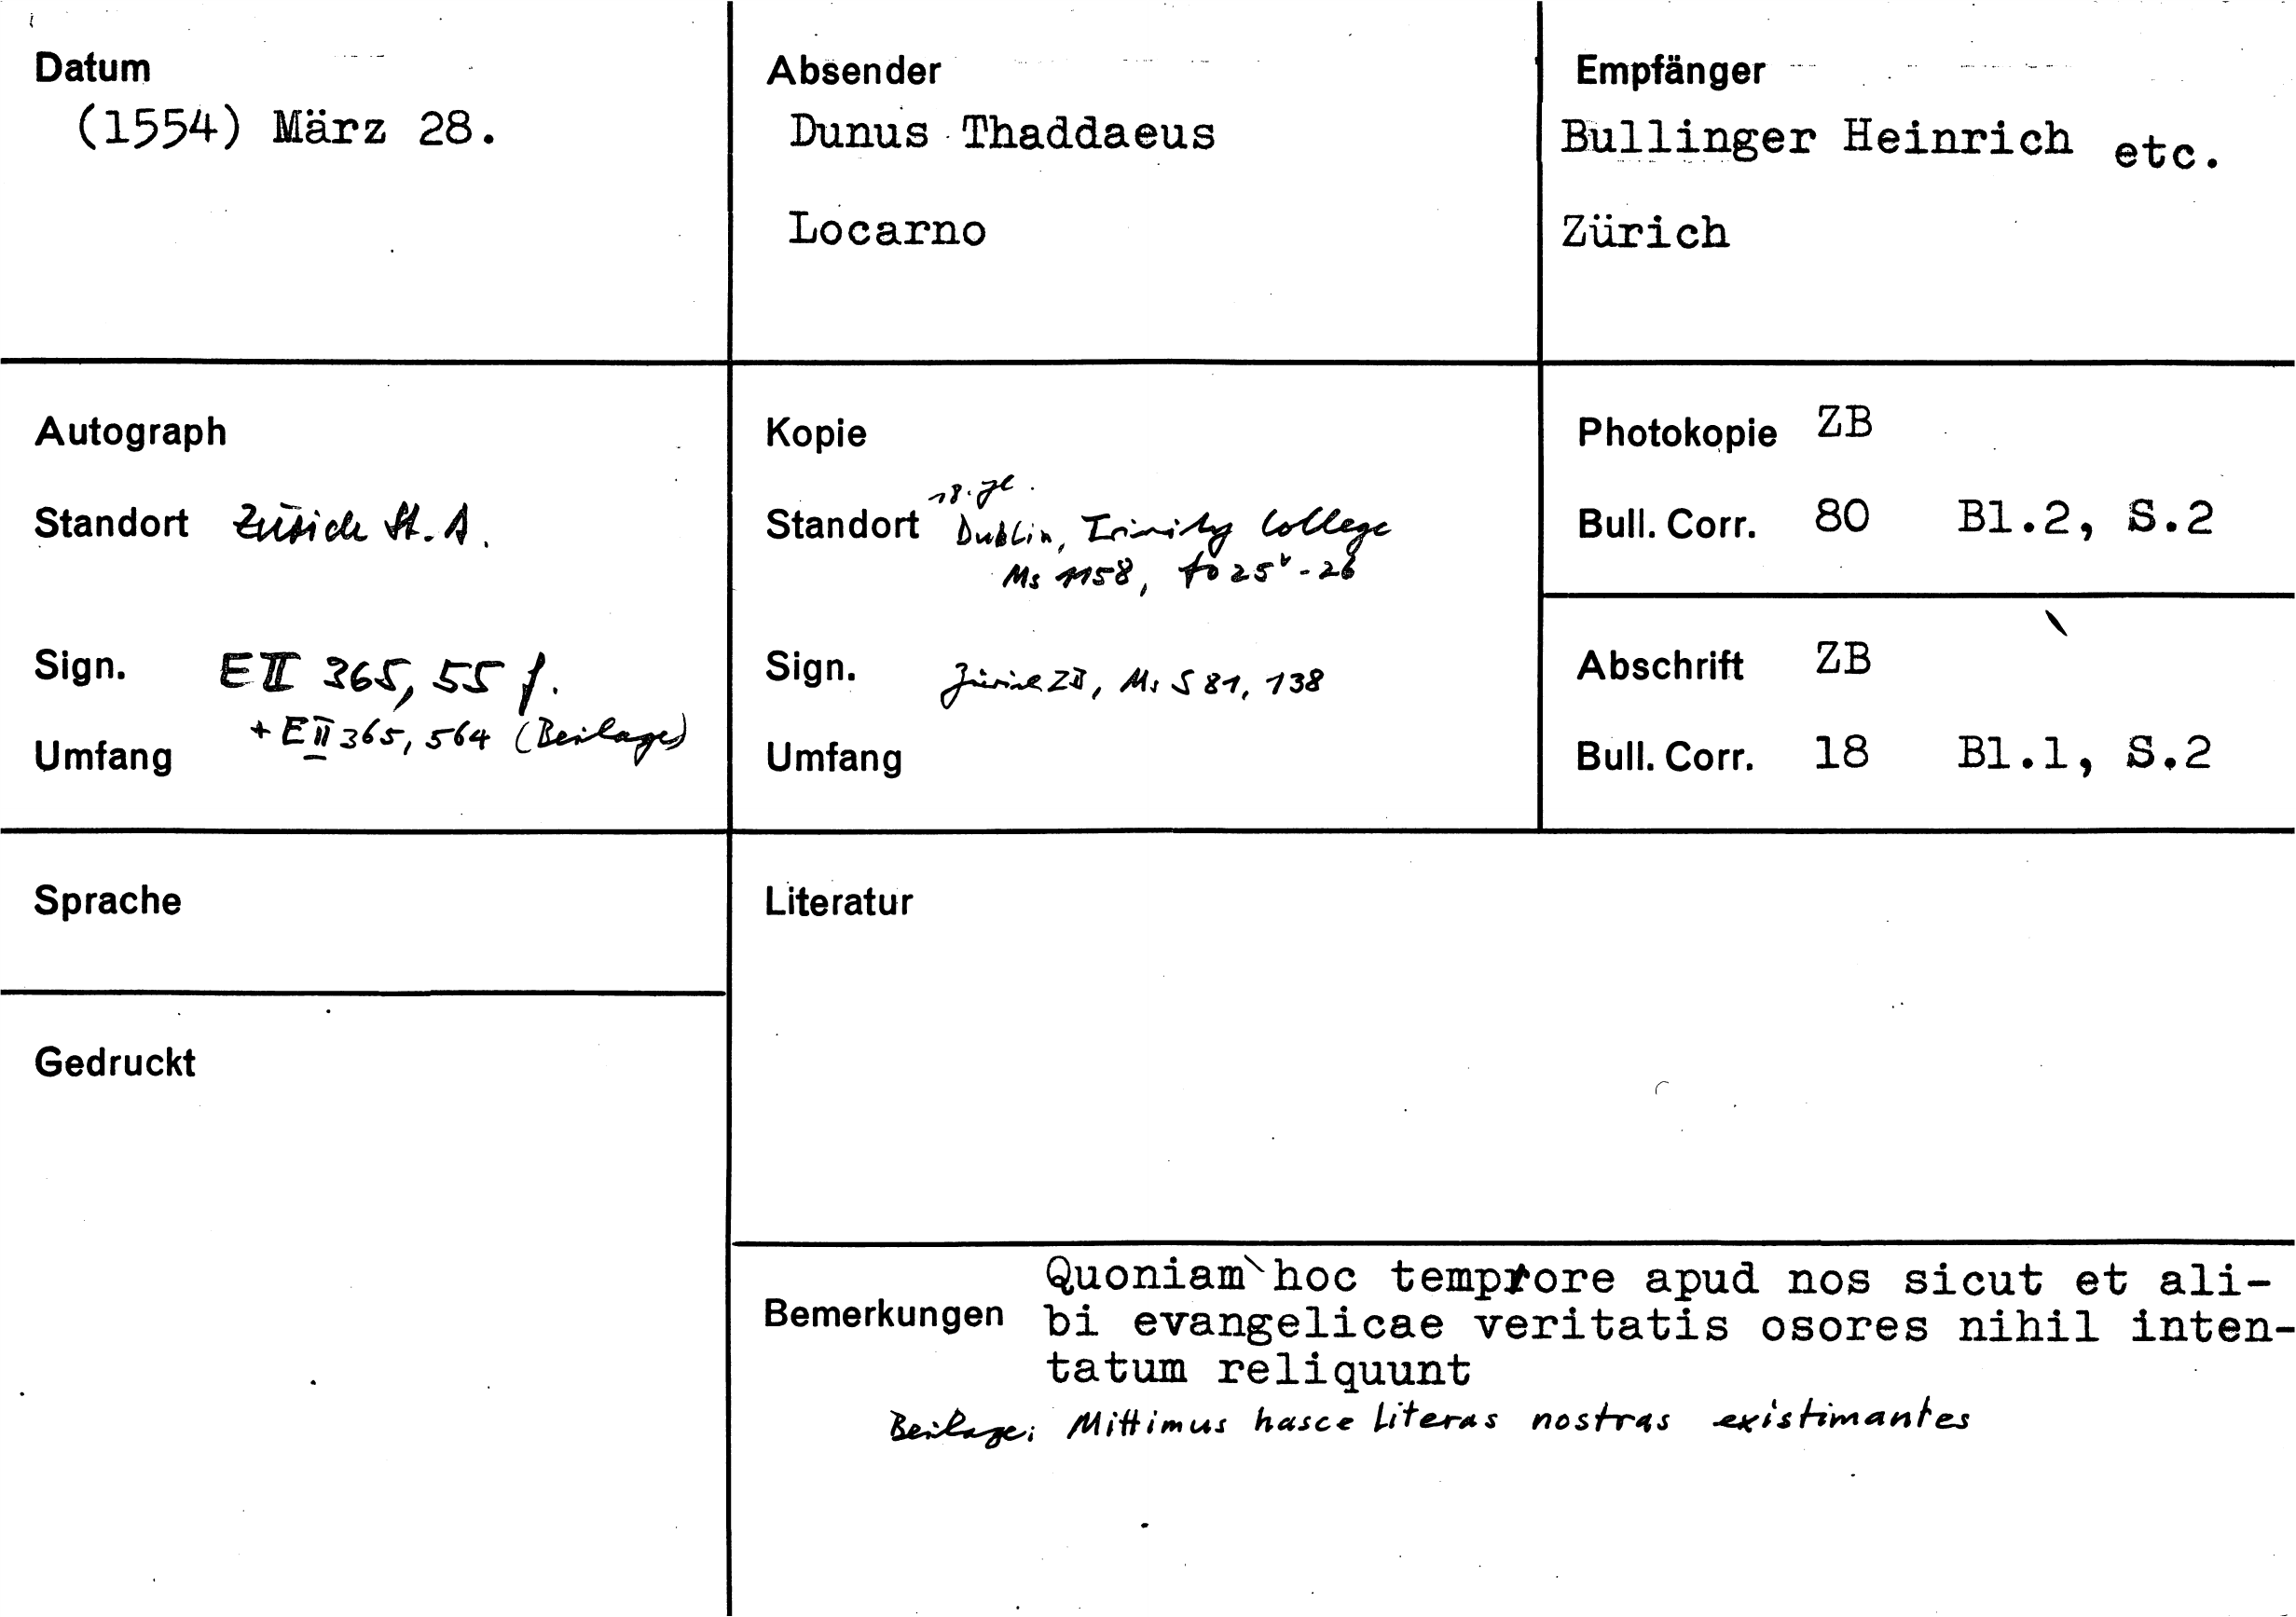 Datum
(1554) März 28.
Absender
Dunus Thaddaeus
Locarno
Empfänger
Bullinger Heinrich etc.
Zürich
Autograph
Standort Zürich St. A.
Sign. E II 365, 55 f.
+ E II 365, 564 (Beilage)
Umfang
Kopie
18. Jh.
Standort Dublin, Trinity College
Ms 1158, fo 25v-26
Sign. Zürich ZB, Ms S 81, 138
Umfang
Photokopie ZB
Bull. Corr. 80 Bl.2, S.2
Abschrift ZB
Bull. Corr. 18 Bl.1, S.2
Sprache
Literatur
Gedruckt
Bemerkungen
Quoniam hoc temprore apud nos sicut et ali-
bi evangelicae veritatis osores nihil inten-
tatum reliquunt
Beilage: Mittimus hasce literas nostras existimantes